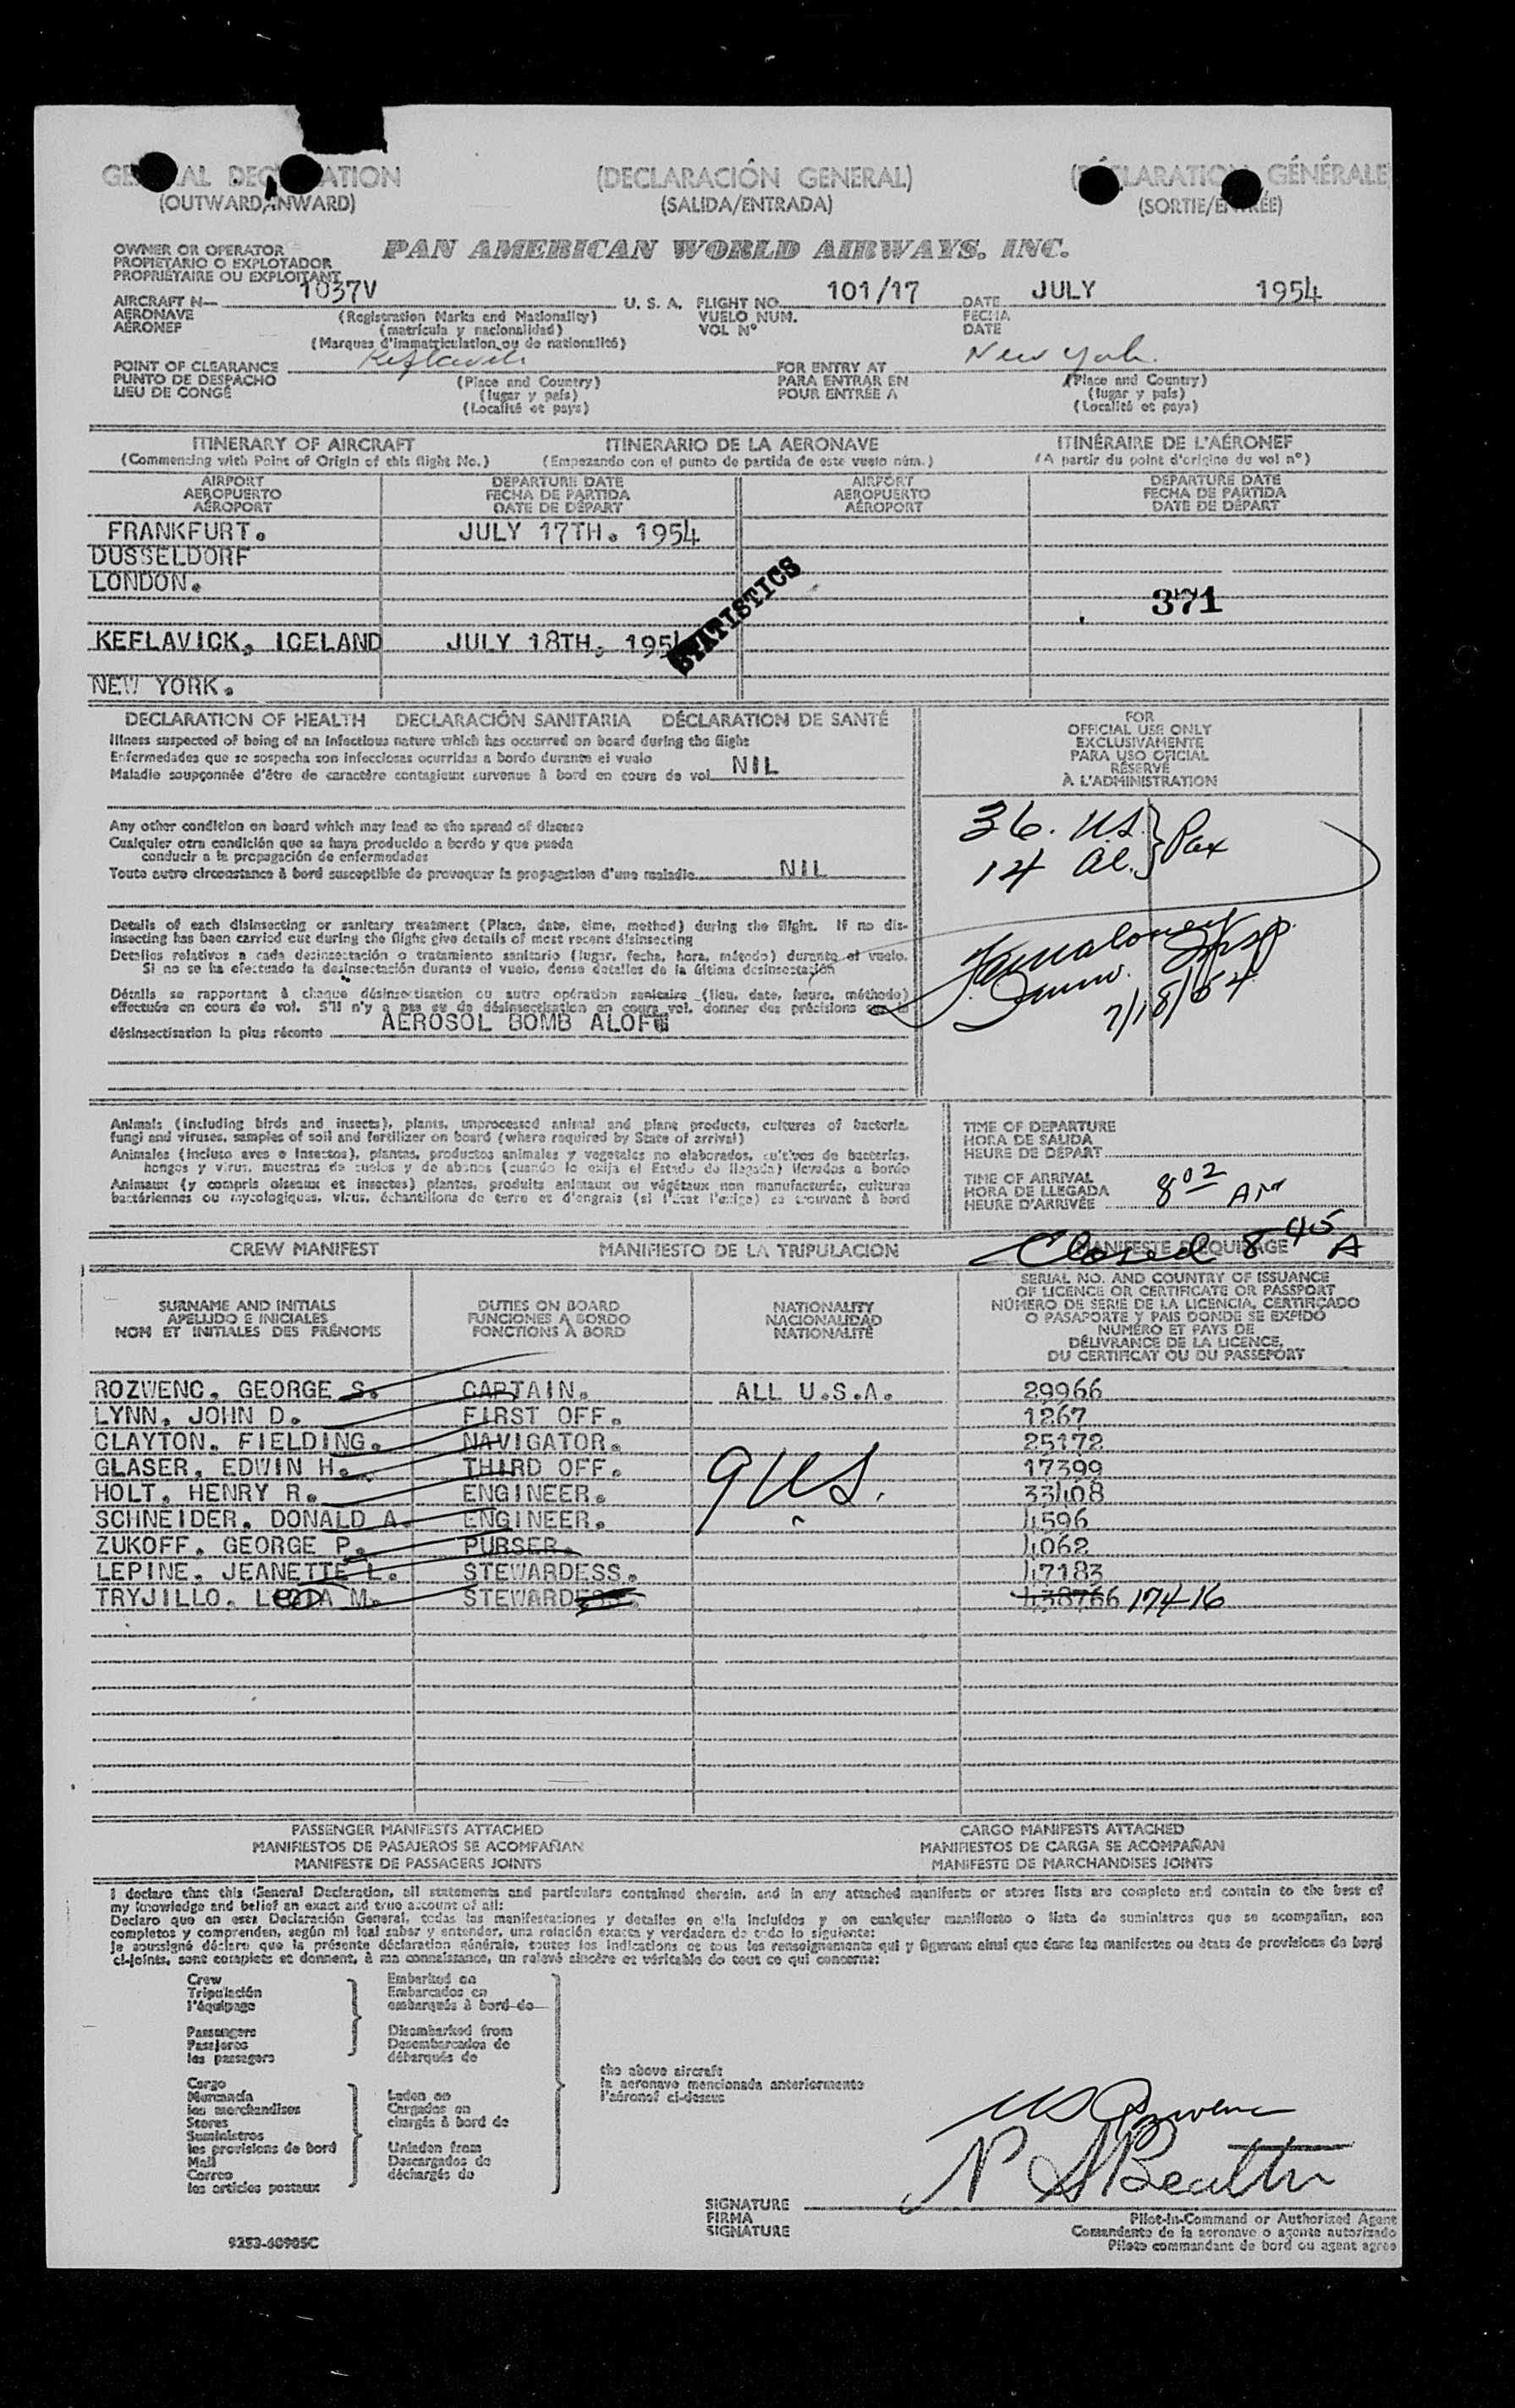 GENERAL DECLARATION (DECLARACIÓN GENERAL) (DÉCLARATION GÉNÉRALE)
(OUTWARD/INWARD) (SALIDA/ENTRADA) (SORTIE/ENTRÉE)
OWNER OR OPERATOR PAN AMERICAN WORLD AIRWAYS, INC.
PROPIETARIO O EXPLOTADOR
PROPRIÉTAIRE OU EXPLOITANT
AIRCRAFT N— 1037V U. S. A. FLIGHT NO. 101/17 DATE JULY 1954
AERONAVE (Registration Marks and Nationality) VUELO NUM. FECHA
AÉRONEF (matrícula y nacionalidad) VOL Nº DATE
(Marques d'immatriculation ou de nationalité)
POINT OF CLEARANCE Keflavik FOR ENTRY AT New York.
PUNTO DE DESPACHO (Place and Country) PARA ENTRAR EN (Place and Country)
LIEU DE CONGÉ (lugar y país) POUR ENTRÉE A (lugar y país)
(Localité et pays) (Localité et pays)
ITINERARY OF AIRCRAFT ITINERARIO DE LA AERONAVE ITINÉRAIRE DE L'AÉRONEF
(Commencing with Point of Origin of this flight No.) (Empezando con el punto de partida de este vuelo núm.) (A partir du point d'origine du vol nº)
AIRPORT DEPARTURE DATE AIRPORT DEPARTURE DATE
AEROPUERTO FECHA DE PARTIDA AEROPUERTO FECHA DE PARTIDA
AÉROPORT DATE DE DÉPART AÉROPORT DATE DE DÉPART
FRANKFURT. JULY 17TH. 1954
DUSSELDORF
LONDON.
STATISTICS
371
KEFLAVICK, ICELAND JULY 18TH, 1954
NEW YORK.
DECLARATION OF HEALTH DECLARACIÓN SANITARIA DÉCLARATION DE SANTÉ
Illness suspected of being of an infectious nature which has occurred on board during the flight
Enfermedades que se sospecha son infecciosas ocurridas a bordo durante el vuelo
Maladie soupçonnée d'être de caractère contagieux survenue à bord en cours de vol NIL
Any other condition on board which may lead to the spread of disease
Cualquier otra condición que se haya producido a bordo y que pueda
conducir a la propagación de enfermedades
Toute autre circonstance à bord susceptible de provoquer la propagation d'une maladie NIL
Details of each disinsecting or sanitary treatment (Place, date, time, method) during the flight. If no dis-
insecting has been carried out during the flight give details of most recent disinsecting
Detalles relativos a cada desinsectación o tratamiento sanitario (lugar, fecha, hora, método) durante el vuelo.
Si no se ha efectuado la desinsectación durante el vuelo, dense detalles de la última desinsectación
Détails se rapportant à chaque désinsectisation ou autre opération sanitaire (lieu, date, heure, méthode)
effectuée en cours de vol. S'il n'y a pas eu de désinsectisation en cours vol, donner des précisions sur la
désinsectisation la plus récente AEROSOL BOMB ALOFT
FOR
OFFICIAL USE ONLY
EXCLUSIVAMENTE
PARA USO OFICIAL
RÉSERVÉ
À L'ADMINISTRATION
36. US. } Pax
14 Al.
Insp.
7/18/54
Animals (including birds and insects), plants, unprocessed animal and plant products, cultures of bacteria,
fungi and viruses, samples of soil and fertilizer on board (where required by State of arrival)
Animales (incluso aves e insectos), plantas, productos animales y vegetales no elaborados, cultivos de bacterias,
hongos y virus, muestras de suelos y de abonos (cuando lo exija el Estado de llegada) llevados a bordo
Animaux (y compris oiseaux et insectes) plantes, produits animaux ou végétaux non manufacturés, cultures
bactériennes ou mycologiques, virus, échantillons de terre et d'engrais (si l'état l'exige) se trouvant à bord
TIME OF DEPARTURE
HORA DE SALIDA
HEURE DE DÉPART
TIME OF ARRIVAL
HORA DE LLEGADA
HEURE D'ARRIVÉE 8 02 AM
Closed 8 45 A
CREW MANIFEST MANIFIESTO DE LA TRIPULACION MANIFESTE D'EQUIPAGE
SURNAME AND INITIALS DUTIES ON BOARD NATIONALITY SERIAL NO. AND COUNTRY OF ISSUANCE
APELLIDO E INICIALES FUNCIONES A BORDO NACIONALIDAD OF LICENCE OR CERTIFICATE OR PASSPORT
NOM ET INITIALES DES PRÉNOMS FONCTIONS À BORD NATIONALITÉ NÚMERO DE SERIE DE LA LICENCIA, CERTIFICADO
O PASAPORTE Y PAIS DONDE SE EXPIDÓ
NUMÉRO ET PAYS DE
DÉLIVRANCE DE LA LICENCE,
DU CERTIFICAT OU DU PASSEPORT
ROZWENC, GEORGE S. CAPTAIN. ALL U.S.A. 29966
LYNN, JOHN D. FIRST OFF. 1267
CLAYTON, FIELDING. NAVIGATOR. 25172
GLASER, EDWIN H. THIRD OFF. 17399
HOLT, HENRY R. ENGINEER. 9 US. 33408
SCHNEIDER, DONALD A. ENGINEER. 4596
ZUKOFF, GEORGE P. PURSER. 4062
LEPINE, JEANETTE L. STEWARDESS. 47183
TRYJILLO, M. STEWARDESS. 438766 17416
PASSENGER MANIFESTS ATTACHED CARGO MANIFESTS ATTACHED
MANIFIESTOS DE PASAJEROS SE ACOMPAÑAN MANIFIESTOS DE CARGA SE ACOMPAÑAN
MANIFESTE DE PASSAGERS JOINTS MANIFESTE DE MARCHANDISES JOINTS
I declare that this General Declaration, all statements and particulars contained therein, and in any attached manifests or stores lists are complete and contain to the best of
my knowledge and belief an exact and true account of all:
Declaro que en esta Declaración General, todas las manifestaciones y detalles en ella incluídos y en cualquier manifiesto o lista de suministros que se acompañan, son
completos y comprenden, según mi leal saber y entender, una relación exacta y verdadera de todo lo siguiente:
Je soussigné déclare que la présente déclaration générale, toutes les indications et tous les renseignements qui y figurent ainsi que dans les manifestes ou états de provisions de bord
ci-joints, sont complets et donnent, à ma connaissance, un relevé sincère et véritable de tout ce qui concerne:
Crew Embarked on
Tripulación Embarcados en
l'équipage embarqués à bord de
Passengers Disembarked from
Pasajeros Desembarcados de
les passagers débarqués de
the above aircraft
la aeronave mencionada anteriormente
l'aéronef ci-dessus
Cargo
Mercancía Laden on
les marchandises Cargados en
Stores chargés à bord de
Suministros
les provisions de bord Unladen from
Mail Descargados de
Correo déchargés de
les articles postaux
SIGNATURE
FIRMA
SIGNATURE
Pilot-in-Command or Authorized Agent
Comandante de la aeronave o agente autorizado
Pilote commandant de bord ou agent agree
9253-60905C